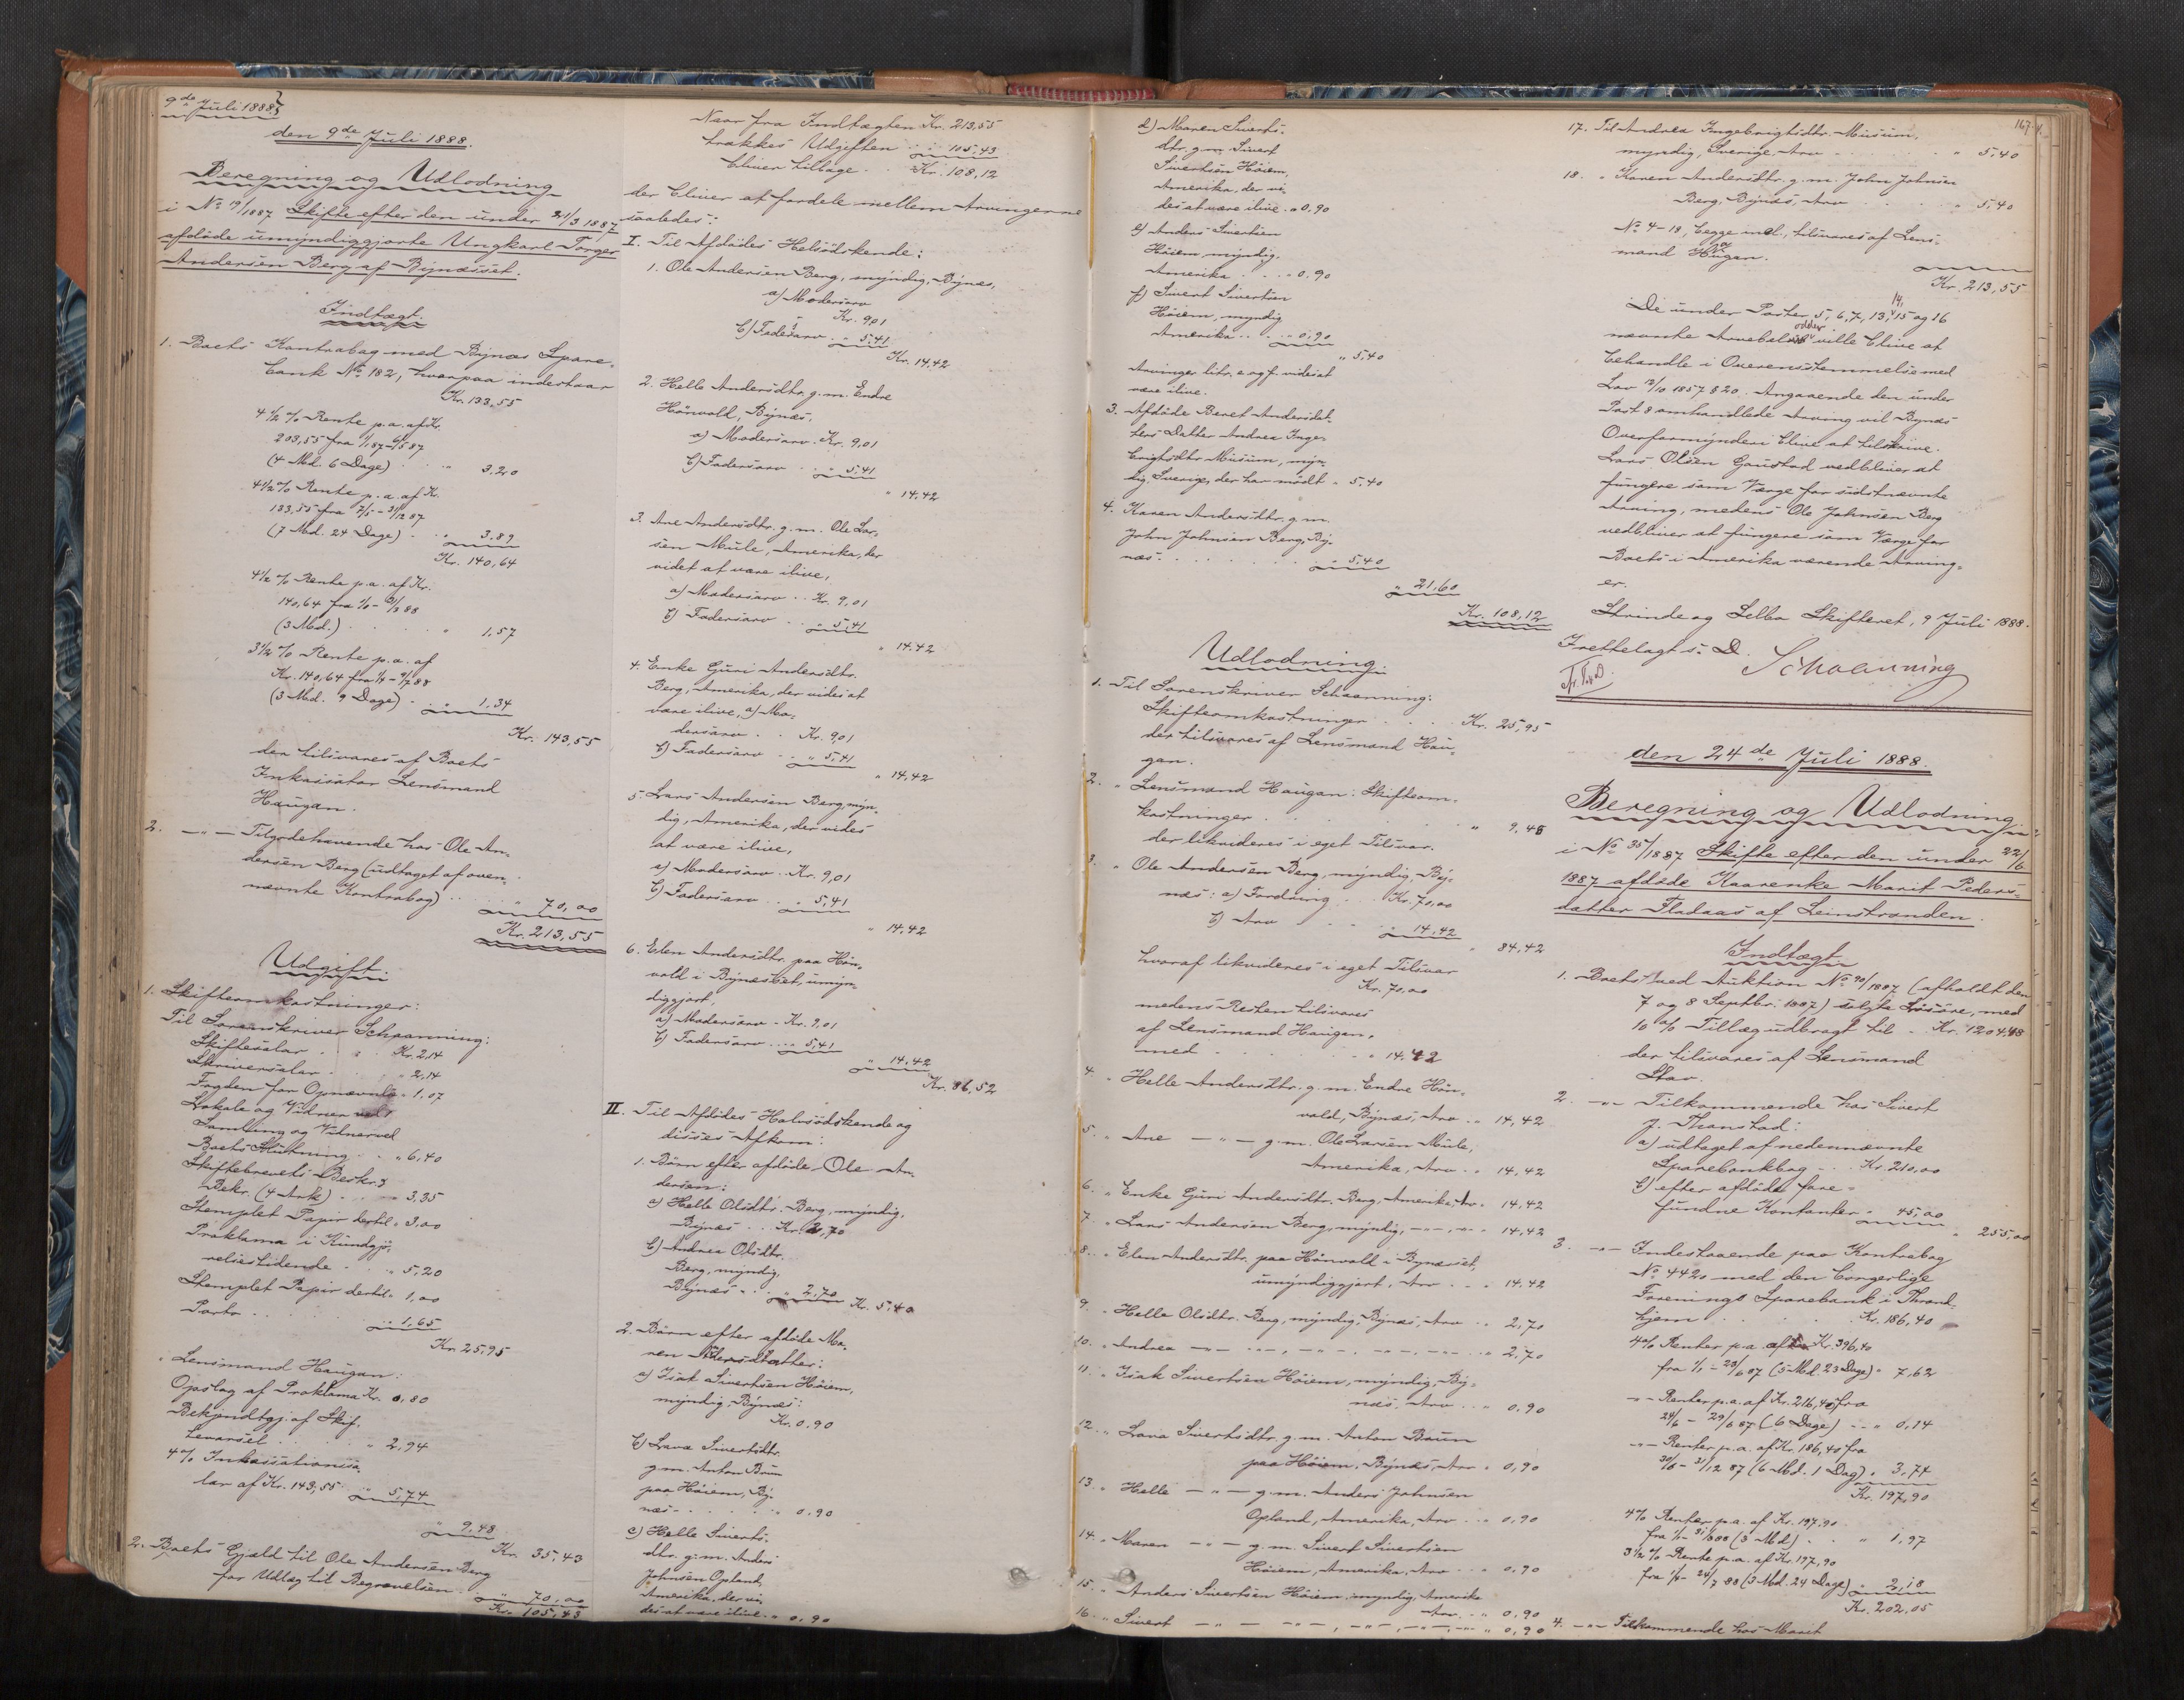 9de Juli 1888
den 9de Juli 1888.
Beregning og Udlodning
i No 19/1887 Skifte efter den under 21/3 1887
afdöde umyndiggjorte Ungkarl Torger
Andersen Berg af Bynæsset.
Indtægt.
1. Boets Kontrabog med Bynæs Spare-
bank No 182, hvorpaa indestaar
Kr. 133,55
4 1/2 % Rente p.a. af Kr.
203,55 fra 1/1 87 - 6/5 87
(4 Md. 6 Dage) . . " 3,20
4 1/2 % Rente p.a. af Kr.
133,55 fra 7/5 - 31/12 87
(7 Md. 24 Dage) . . " 3,89
Kr. 140,64
4 1/2 % Rente p.a. af Kr.
140,64 fra 1/1 - 31/3 88
(3 Md.) . . . " 1,57
3 1/2 % Rente p.a. af
Kr. 140,64 fra 1/4 - 9/7 88
(3 Md. 9 Dage) . . 1,34
Kr. 143,55
der tilsvares af Boets
Inkassator Lensmand
Haugan.
2. —"— Tilgodehavende hos Ole An-
dersen Berg (udtaget af oven-
nævnte Kontrabog) . . " 70,00
Kr. 213,55
Udgift.
1. Skifteomkostninger:
Til Sorenskriver Schaanning:
Skiftesalar . . Kr. 2,14
Skriversalar . . " 2,14
Fogden for Opnævnte " 1,07
Lokale og Vidner ved 1
Samling og Vidner ved
Boets Slutning . . " 6,40
Skiftebrevets Beskr. &
Bekr. (4 Ark) . . " 3,35
Stemplet Papir dertil " 3,00
Proklama i Kundgjö-
relsestidende . . " 5,20
Stemplet Papir dertil " 1,00
Porto . . . " 1,65
Kr. 25,95
" Lensmand Haugan:
Opslag af Proklama Kr. 0,80
Bekjendtgj. af Skif-
tevarsel . . . " 2,94
4 % Inkassationssa-
lar af Kr. 143,55 " 5,74
" 9,48
Kr. 35,43
2. Boets Gjæld til Ole Andersen Berg
for Udlæg til Begravelsen . . " 70,00
Kr. 105,43
Naar fra Indtægten Kr. 213,55
trækkes Udgiften . " 105,43
bliver tilbage . . Kr. 108,12
der bliver at fordele mellem Arvingerne
saaledes:
I. Til Afdödes Helsödskende:
1. Ole Andersen Berg, myndig, Bynæs,
a) Modersarv
Kr. 9,01
b) Fadersarv . " 5,41
Kr. 14,42
2. Helle Andersdtr. g. m. Endre
Hönvold, Bynæs,
a) Modersarv . Kr. 9,01
b) Fadersarv . . " 5,41
" 14,42
3. Ane Andersdtr. g. m. Ole Lar-
sen Mule, Amerika, der
vides at være ilive,
a) Modersarv . . Kr. 9,01
b) Fadersarv . . " 5,41
" 14,42
4. Enke Guri Andersdtr.
Berg, Amerika, der vides at
være ilive, a) Mo-
dersarv . . Kr. 9,01
b) Fadersarv . . " 5,41
" 14,42
5. Lars Andersen Berg, myn-
dig, Amerika, der vides
at være ilive,
a) Modersarv . Kr. 9,01
b) Fadersarv . . " 5,41
" 14,42
6. Elen Andersdtr. paa Hön-
vold i Bynæsset, umyn-
diggjort,
a) Modersarv . Kr. 9,01
b) Fadersarv . . " 5,41
" 14,42
Kr. 86,52
II. Til Afdödes Halvsödskende og
disses Afkom:
1. Börn efter afdöde Ole An-
dersen:
a) Helle Olsdtr. Berg, myndig,
Bynæs . . Kr. 2,70
b) Andrea Olsdtr.
Berg, myndig,
Bynæs . . " 2,70 Kr. 5,40
2. Börn efter afdöde Ma-
ren Andersdatter:
a) Isak Sivertsen Höiem,
myndig, Bynæs:
Kr. 0,90
b) Lava Sivertsdtr.
g. m. Anton Brun
paa Höiem, By-
næs . . . " 0,90
c) Helle Siverts-
dtr. g. m. Anders
Johnsen Opland,
Amerika, der vi-
des at være ilive . " 0,90
167.
d) Maren Siverts-
dtr. g. m. Sivert
Sivertsen Höiem,
Amerika, der vi-
des at være ilive . " 0,90
e) Anders Sivertsen
Höiem, myndig,
Amerika . . . " 0,90
f) Sivert Sivertsen
Höiem, myndig
Amerika . . . " 0,90
" 5,40
Arvinger litr. e og f. vides at
være ilive.
3. Afdöde Beret Andersdat-
ters Datter Andrea Inge-
brigtsdtr. Musum, myn-
dig, Sverige, der har mödt " 5,40
4. Karen Andersdtr. g. m.
John Johnsen Berg, By-
næs . . . . " 5,40
" 21,60
Kr. 108,12
Udlodning.
1. Til Sorenskriver Schaanning:
Skifteomkostninger . . . Kr. 25,95
der tilsvares af Lensmand Hau-
gan.
2. " Lensmand Haugan: Skifteom-
kostninger . . . " 9,48
der likvideres i eget Tilsvar.
3. " Ole Andersen Berg, myndig, By-
næs: a) Fordring . . Kr. 70,00
b) Arv . . " 14,42
" 84,42
hvoraf likvideres i eget Tilsvar
Kr. 70,00
medens Resten tilsvares
af Lensmand Haugan,
med . . . " 14,42
4. " Helle Andersdtr. g. m. Endre Hön-
vold, Bynæs, Arv . . " 14,42
5. " Ane —"— g. m. Ole Larsen Mule,
Amerika, Arv . . " 14,42
6. " Enke Guri Andersdtr. Berg, Amerika, Arv " 14,42
7. " Lars Andersen Berg, myndig, —"—, —"— " 14,42
8. " Elen Andersdtr. paa Hönvold i Bynæsset,
umyndiggjort, Arv . . . " 14,42
9. " Helle Olsdtr. Berg, myndig, Bynæs, Arv . . " 2,70
10. " Andrea —"— —"—, —"—, —"—, —"— " 2,70
11. " Isak Sivertsen Höiem, myndig, By-
næs, Arv . . " 0,90
12. " Lava Sivertsdtr. g. m. Anton Brun
paa Höiem, Bynæs, Arv . " 0,90
13. " Helle —"— g. m. Anders Johnsen
Opland, Amerika, Arv . . " 0,90
14. " Maren —"— g. m. Sivert Sivertsen
Höiem, Amerika, Arv . . " 0,90
15. " Anders Sivertsen Höiem, myndig, Amerika
Arv . . " 0,90
16. " Sivert —"— —"—, —"—, —"—, —"— " 0,90
17. Til Andrea Ingebrigtsdtr. Musum,
myndig, Sverige, Arv . . . " 5,40
18. " Karen Andersdtr. g. m. John Johnsen
Berg, Bynæs, Arv . . . " 5,40
No 4-18, begge incl., tilsvares af Lens-
mand Haugan.
Kr. 213,55
De under Poster 5, 6, 7, 13, 14, 15 og 16
nævnte Arvebelöb ville blive at
behandle i Overensstemmelse med
Lov 12/10 1857 § 20. Angaaende den under
Post 8 omhandlede Arving vil Bynæs
Overformynderi blive at tilskrive.
Lars Olsen Gaustad vedbliver at
fungere som Værge for sidstnævnte
Arving, medens Ole Johnsen Berg
vedbliver at fungere som Værge for
Boets i Amerika værende Arving-
er.
Strinde og Selbo Skifteret, 9 Juli 1888.
Frettelagt s. D.
Schaanning
den 24de Juli 1888.
Beregning og Udlodning
i No 35/1887 Skifte efter den under 22/6
1887 afdöde Kaarenke Marit Peders-
datter Fladaas af Leinstranden.
Indtægt.
1. Boets ved Auktion No 90/1887 (afholdt den
7 og 8 Septbr. 1887) solgte Lösöre, med
10 % Tillæg udbragt til . Kr. 1204,48
der tilsvares af Lensmand
Stav.
2. —"— Tilkommende hos Sivert
J. Thanstad:
a) udtaget af nedennævnte
Sparebankbog . . Kr. 210,00
b) efter afdöde fore-
fundne Kontanter " 45,00
" 255,00
3. —"— Indestaaende paa Kontrabog
No 4420 med den borgerlige
Forenings Sparebank i Thrond-
hjem . . . Kr. 186,40
4 % Renter p.a. af Kr. 396,40
fra 1/1 - 23/6 87 (5 Md. 23 Dage) " 7,62
—"— Renter p.a. af Kr. 216,40 fra
24/6 - 29/6 87 (6 Dage) . . " 0,14
—"— Renter p.a. af Kr. 186,40 fra
30/6 - 31/12 87 (6 Md. 1 Dag) " 3,74
Kr. 197,90
4 % Renter p.a. af Kr. 197,90
fra 1/1 - 31/3 88 (3 Md) . . " 1,97
3 1/2 % Rente p.a. af Kr. 197,90
fra 1/4 - 24/7 88 (3 Md. 24 Dage) " 2,18
Kr. 202,05
4. —"— Tilkommende hos Marit